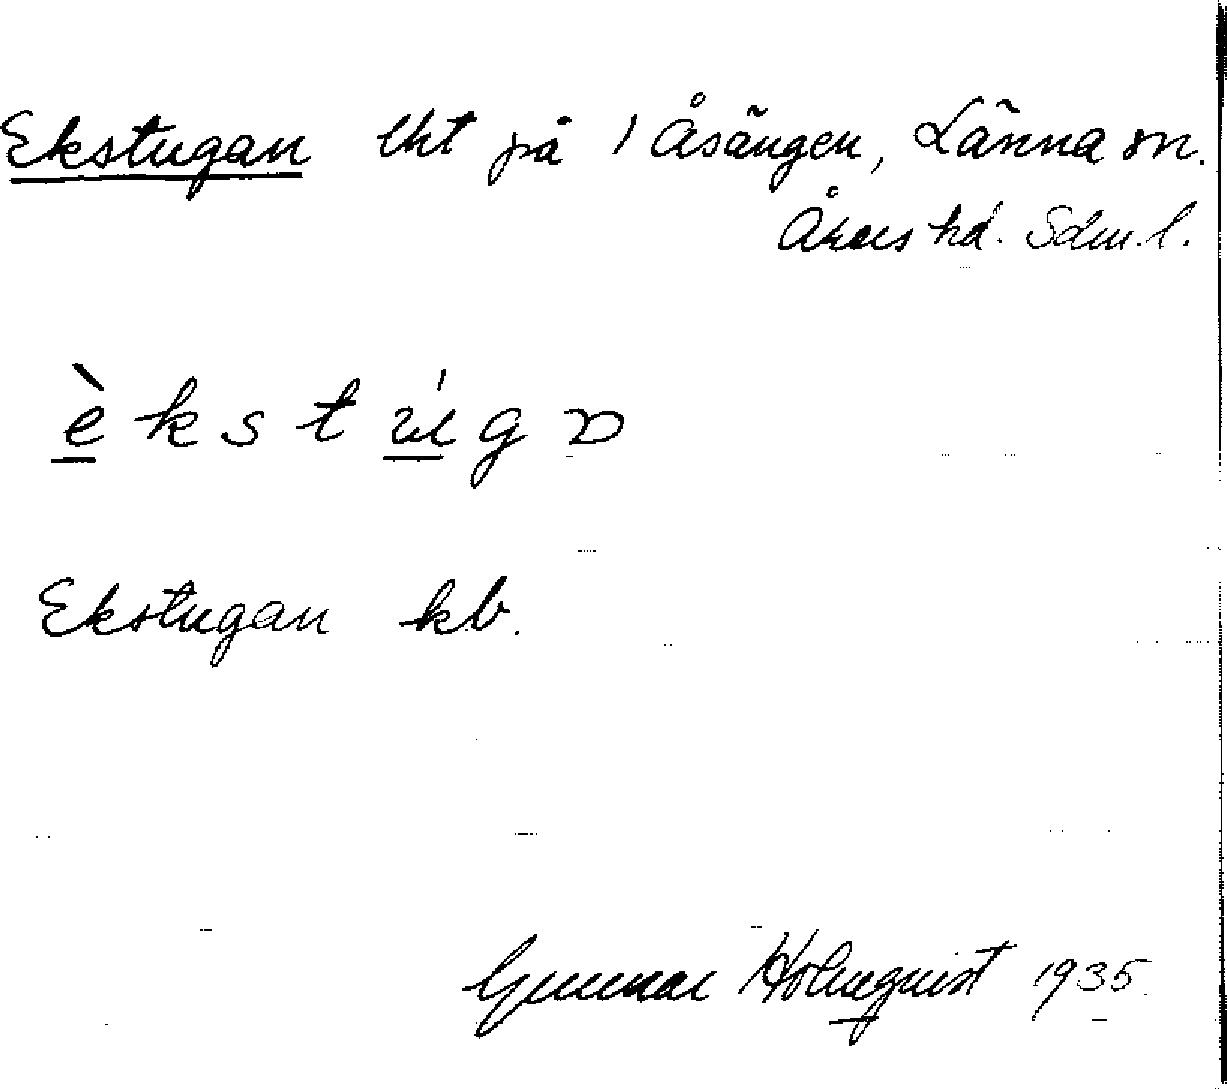 Ekstugan lht på 1 Åsängen, Länna sn.
Åkers hd. Sdm. l.
è k s t ú g
Ekstugan kb.
Gunnar Holmquist 1935.